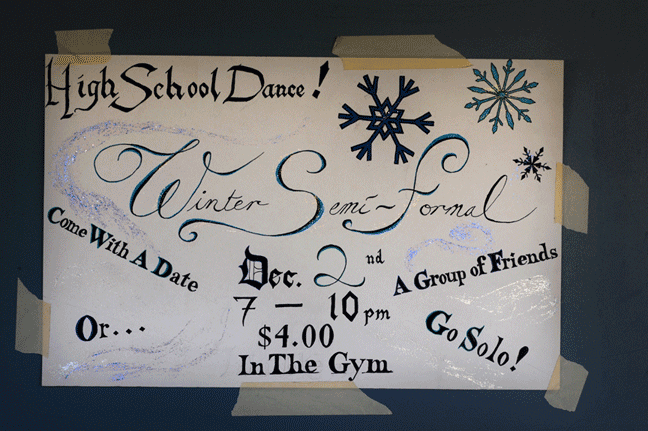 High School Dance!
Winter Semi-Formal
Come With A Date
Dec. 2nd
A Group of Friends
7 — 10 pm
Or...
$4.00
Go Solo!
In The Gym